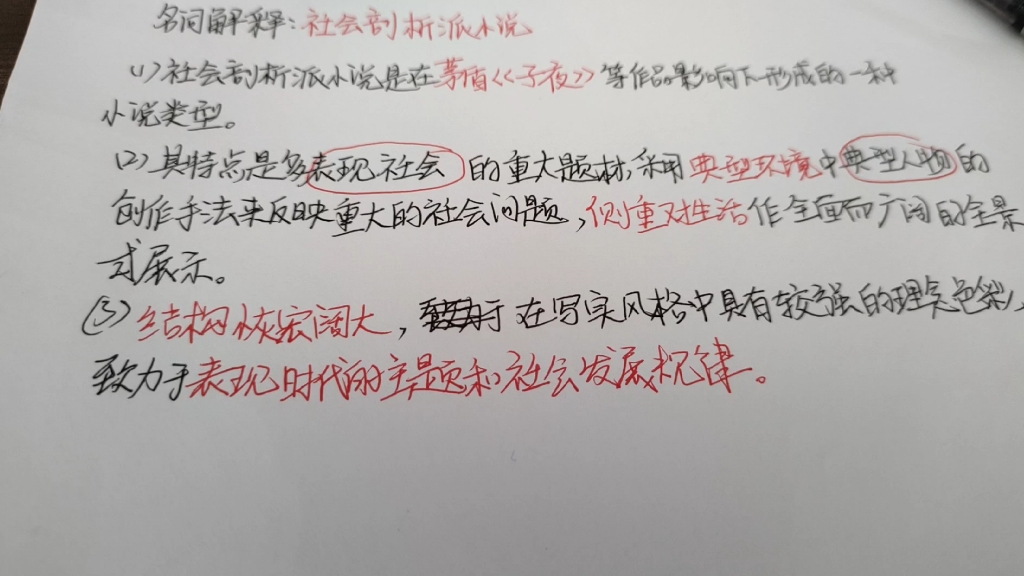 名词解释：社会剖析派小说
(1)社会剖析派小说是在茅盾《子夜》等作品影响下形成的一种
小说类型。
(2)其特点是多表现社会的重大题材，采用典型环境中典型人物的
创作手法来反映重大的社会问题，侧重对生活作全面而广阔的全景
式展示。
(3)结构恢宏阔大，在写实风格中具有较强的理念色彩，
致力于表现时代的主题和社会发展规律。